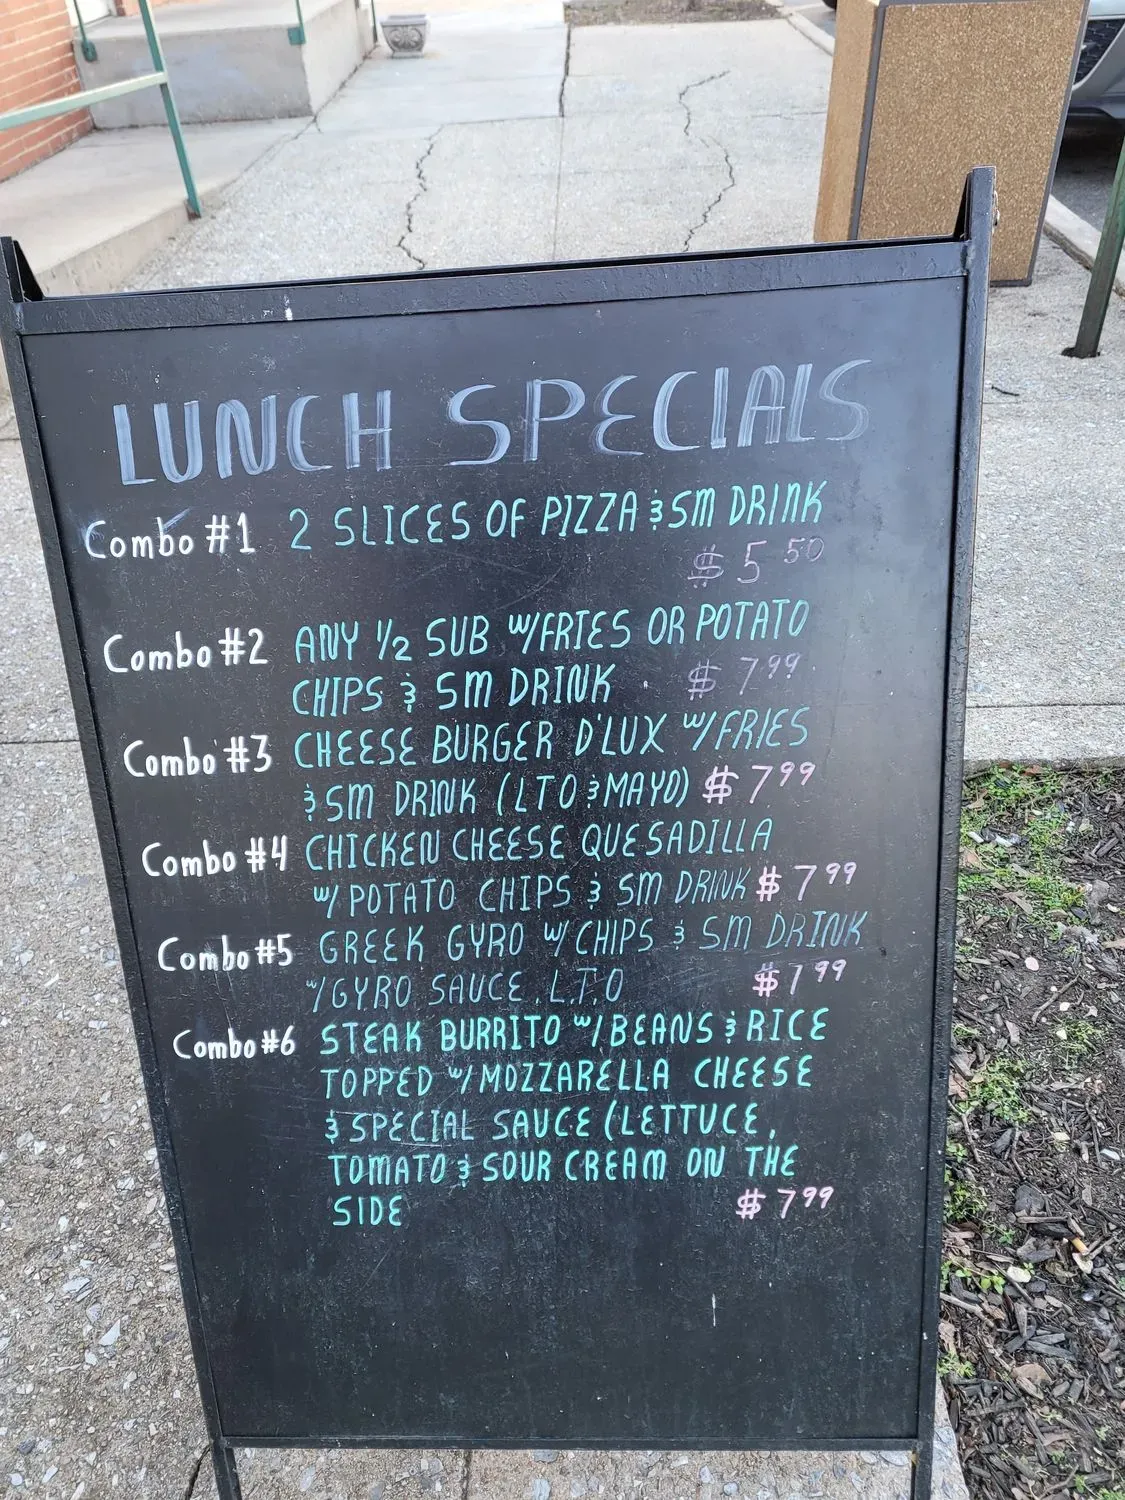 LUNCH SPECIALS
Combo #1 2 SLICES OF PIZZA & SM DRINK
$5.50
Combo #2 ANY 1/2 SUB W/FRIES OR POTATO
CHIPS & SM DRINK $7.99
Combo #3 CHEESE BURGER D'LUX W/FRIES
& SM DRINK (LTO & MAYO) $7.99
Combo #4 CHICKEN CHEESE QUESADILLA
W/POTATO CHIPS & SM DRINK $7.99
Combo #5 GREEK GYRO W/CHIPS & SM DRINK
W/GYRO SAUCE. L.T.O $7.99
Combo #6 STEAK BURRITO W/BEANS & RICE
TOPPED W/MOZZARELLA CHEESE
& SPECIAL SAUCE (LETTUCE,
TOMATO & SOUR CREAM ON THE
SIDE $7.99